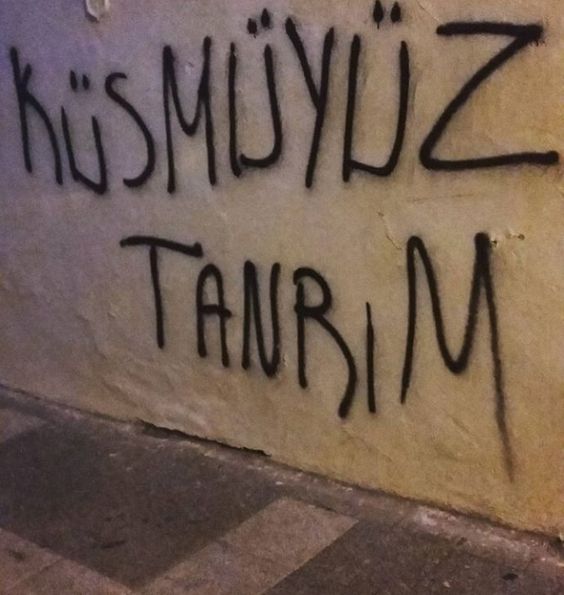 KÜSMÜYÜZ
TANRIM